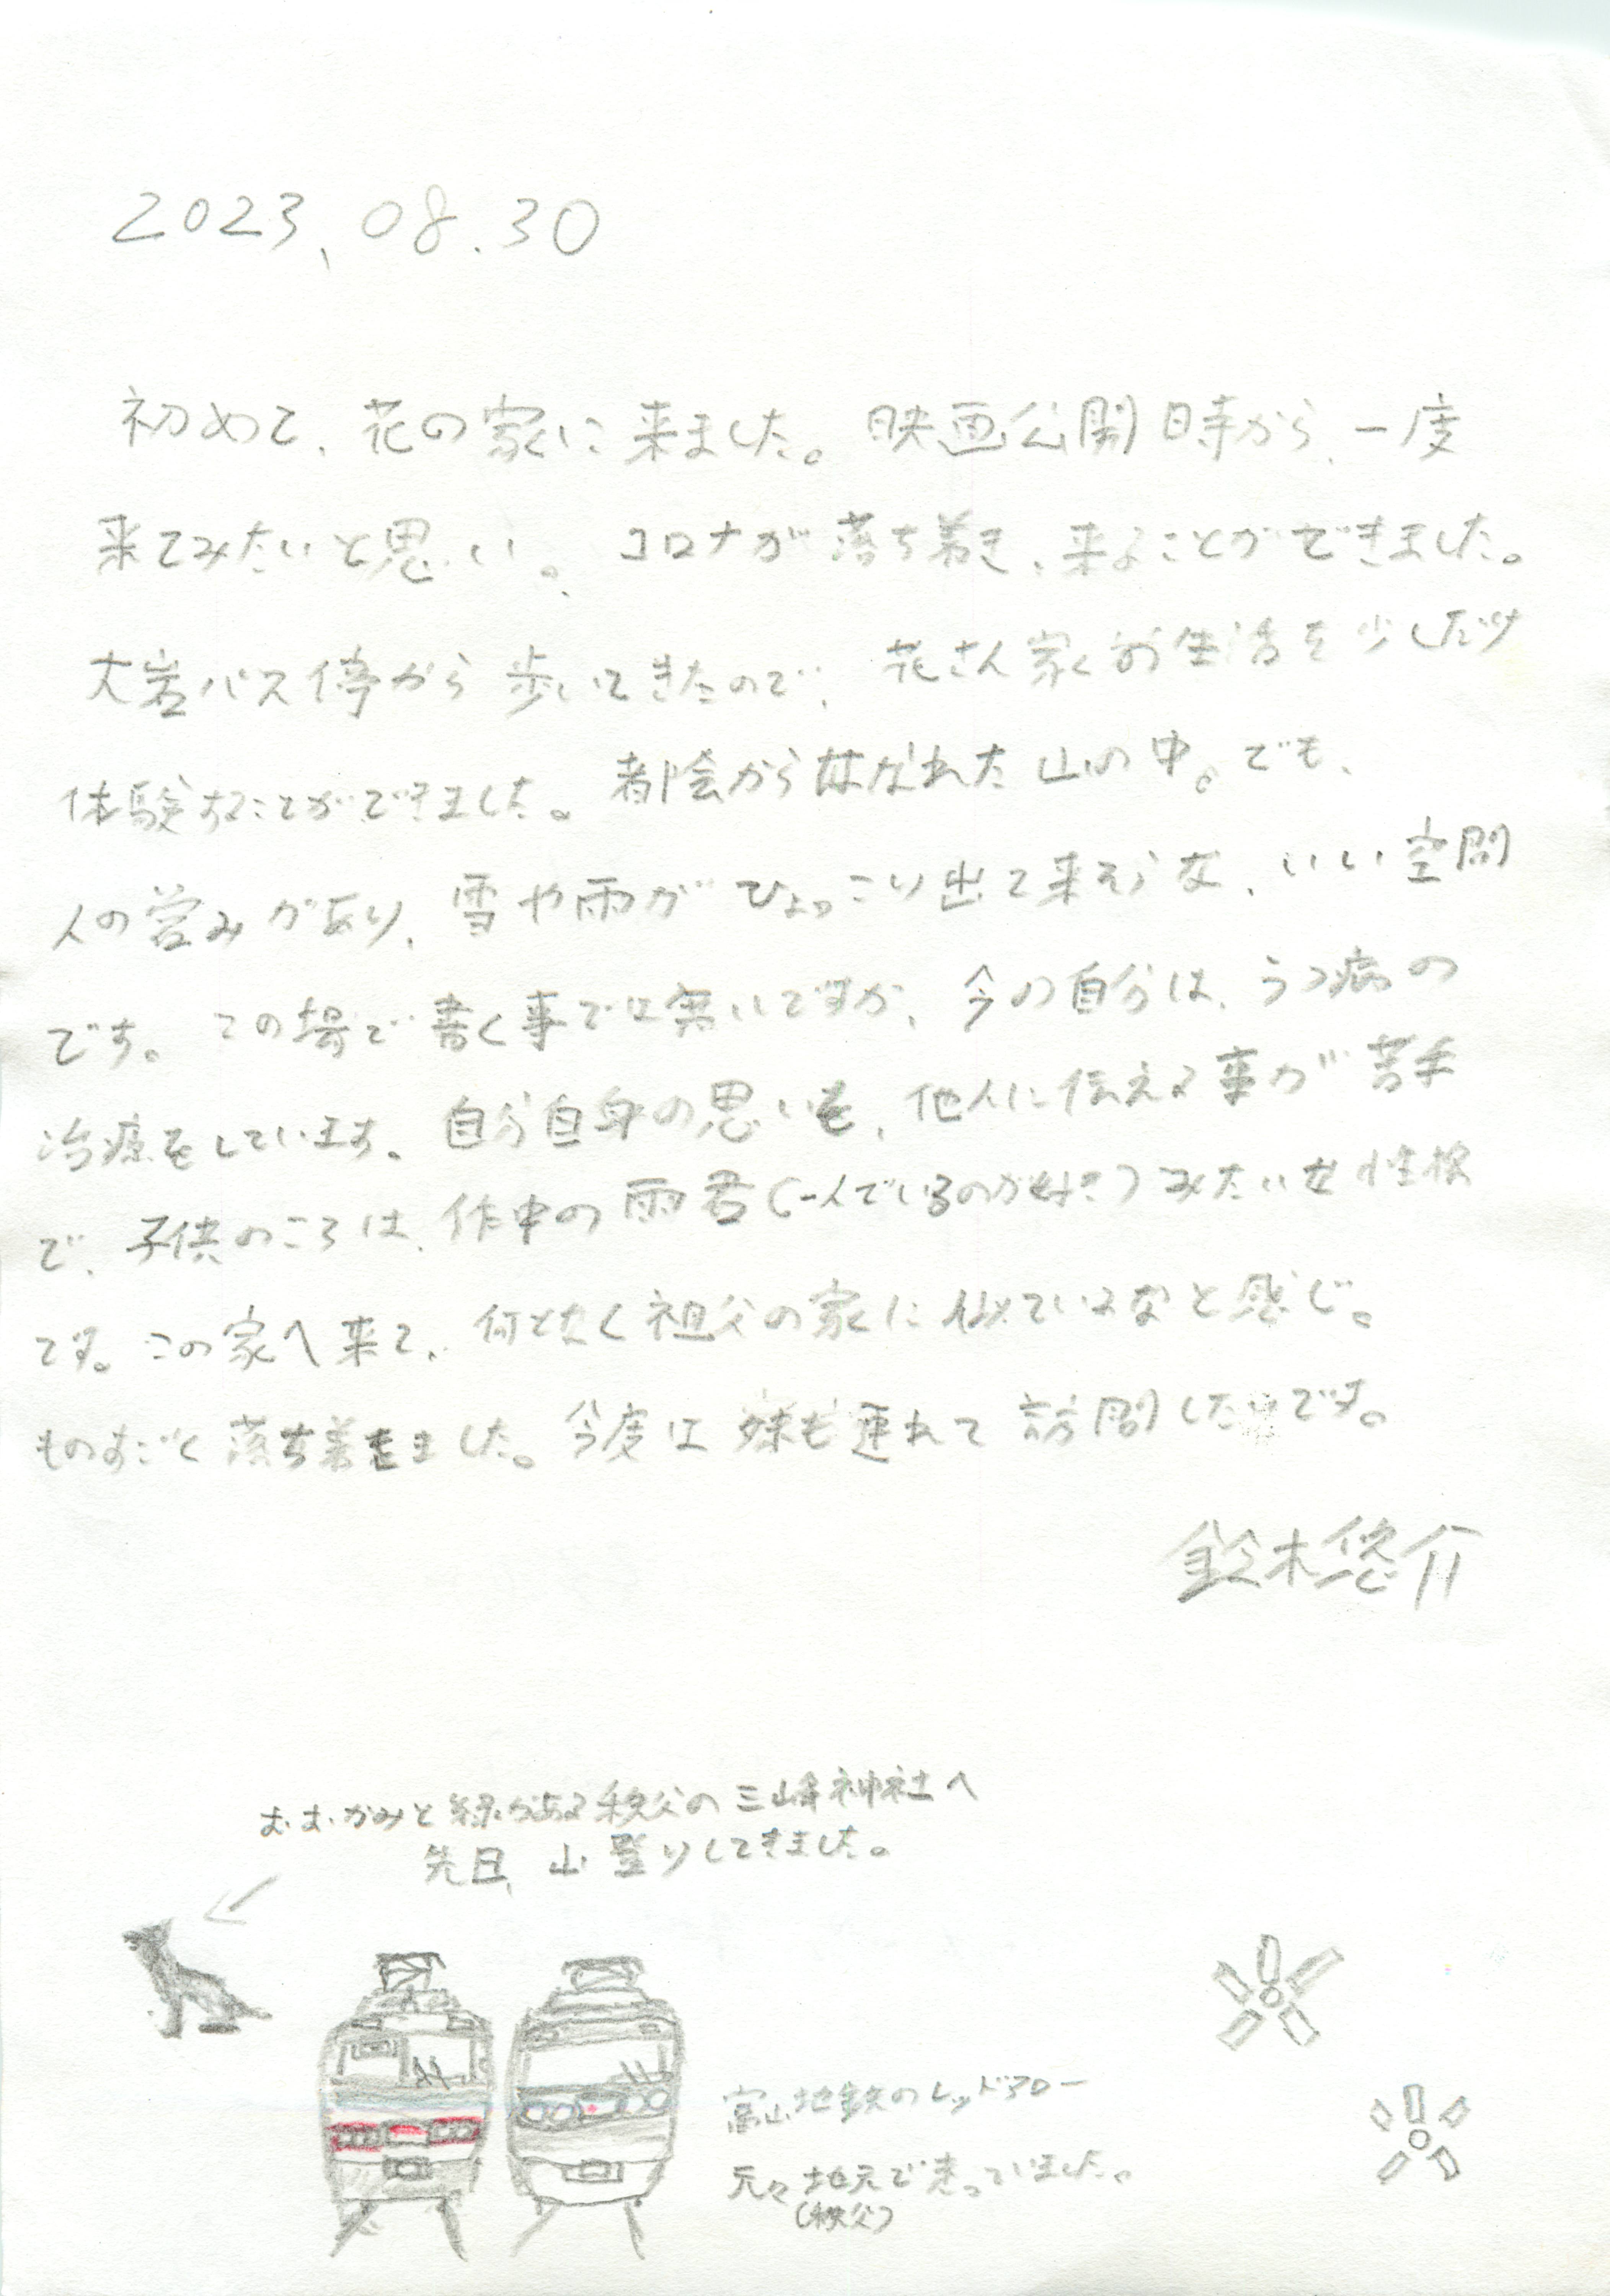 2023.08.30
初めて、花の家に来ました。映画公開日時から、一度
来てみたいと思い。コロナが落ち着き、来ることができました。
大岩バス停から歩いてきたので、花さん家の生活を少しだけ
体験することができました。都会からはなれた山の中。でも、
人の営みがあり、雪や雨がひょっこり出て来そうな、いい空間
です。この場で書く事では無いですが、今の自分は、うつ病の
治療をしています。自分自身の思いを、他人に伝える事が苦手
で、子供のころは、作中の雨君(一人でいるのが好き?)みたいな性格
です。この家へ来て、何となく祖父の家に似ているなと感じ。
ものすごく落ち着きました。今度は妹も連れて訪問したいです。
鈴木悠介
おおかみと縁がある秩父の三峰神社へ
先日、山登りしてきました。
富山地鉄のレッドアロー
元々地元で走っていました。
(秩父)